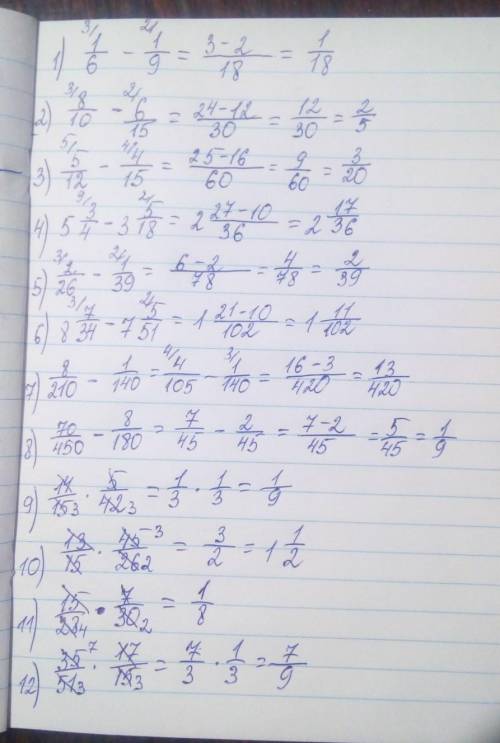 1) ³⁄1/6 - ²⁄1/9 = 3-2/18 = 1/18
2) ³⁄8/10 - ²⁄6/15 = 24-12/30 = 12/30 = 2/5
3) ⁵⁄5/12 - ⁴⁄4/15 = 25-16/60 = 9/60 = 3/20
4) 5 ⁹⁄3/4 - 3 ²⁄5/18 = 2 27-10/36 = 2 17/36
5) ³⁄2/26 - ²⁄1/39 = 6-2/78 = 4/78 = 2/39
6) 8 ³⁄7/34 - 7 ²⁄5/51 = 1 21-10/102 = 1 11/102
7) 8/210 - 1/140 = ⁴⁄4/105 - ³⁄1/140 = 16-3/420 = 13/420
8) 70/450 - 8/180 = 7/45 - 2/45 = 7-2/45 = 5/45 = 1/9
9) 14/15 3 · 5/42 3 = 1/3 · 1/3 = 1/9
10) 13/15 · 45 3/26 2 = 3/2 = 1 1/2
11) 15/28 4 · 7/30 2 = 1/8
12) 35 7/51 3 · 17/15 3 = 7/3 · 1/3 = 7/9